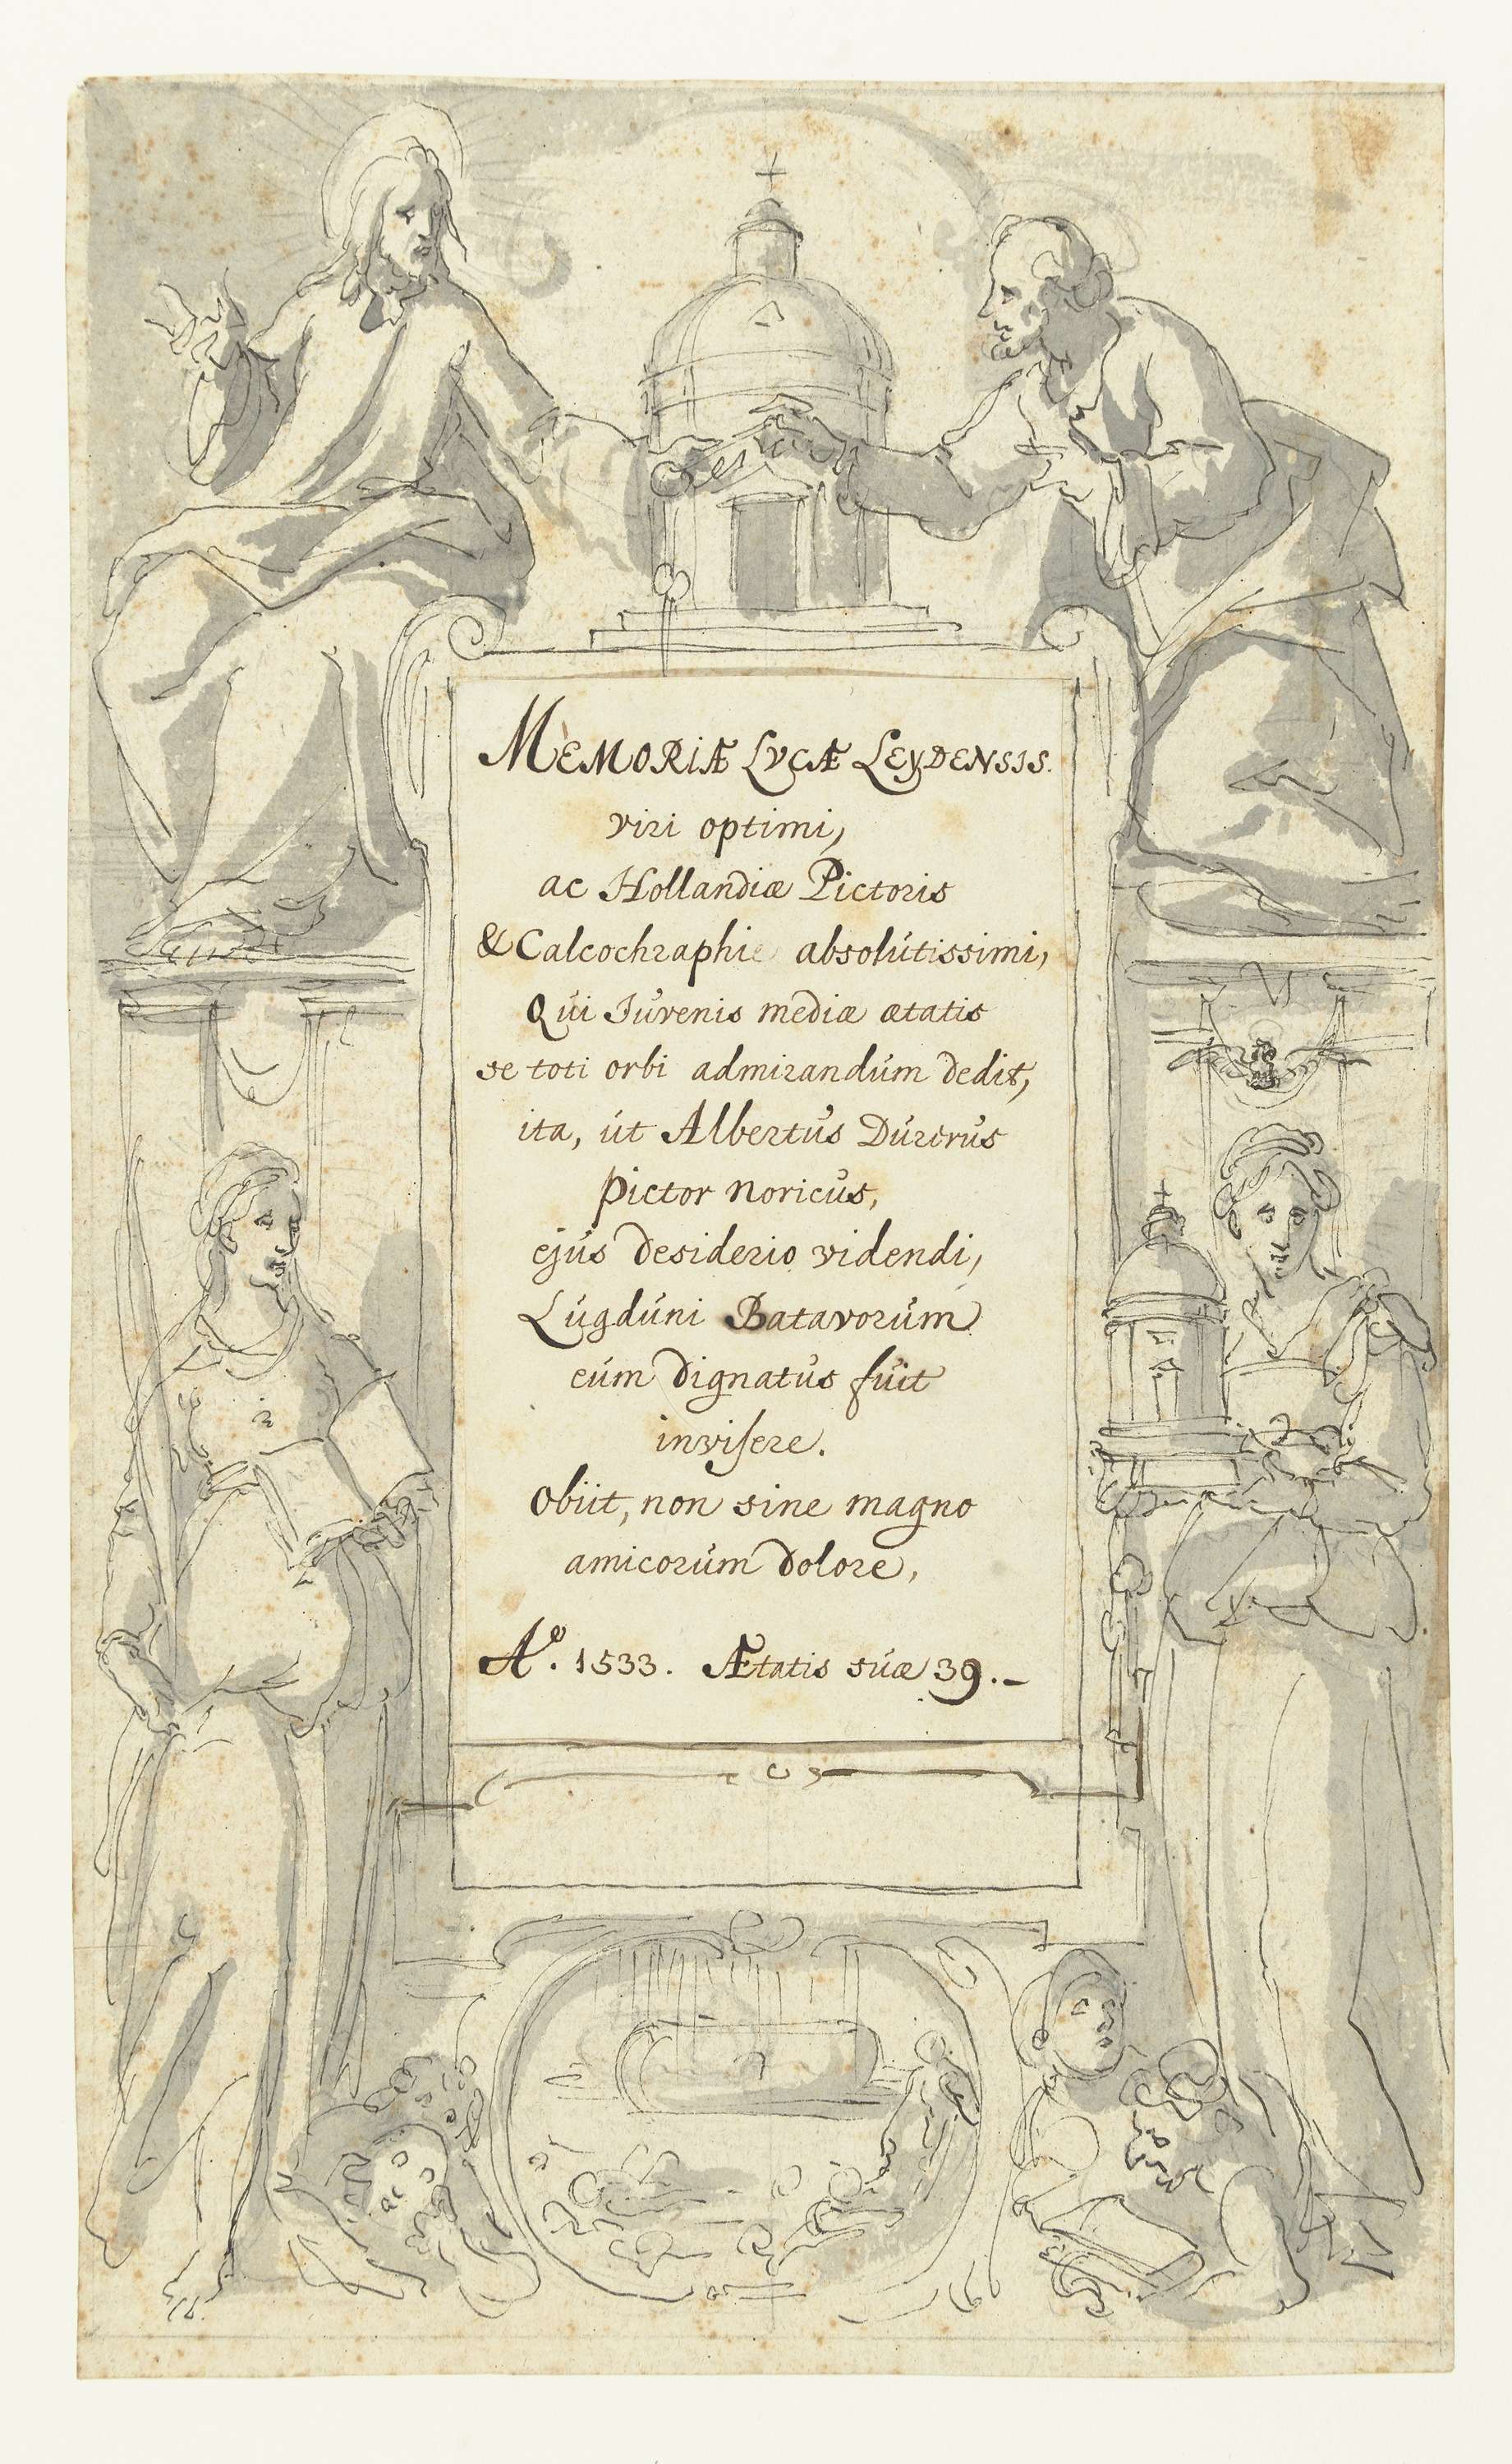 MEMORIÆ LVCÆ LEYDENSIS.
viri optimi,
ac Hollandiæ Pictoris
& Calcochraphie absolútissimi,
Qúi Iúvenis mediæ ætatis
se toti orbi admirandúm dedit,
ita, út Albertús Dúrerús
pictor noricús,
ejús desiderio videndi,
Lúgdúni Batavorúm
eúm dignatús fúit
invisere.
Obiit, non sine magno
amicorúm dolore,
Aº. 1533. Ætatis súæ 39.-